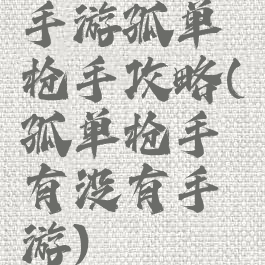 手游孤单
枪手攻略(
孤单枪手
有没有手
游)